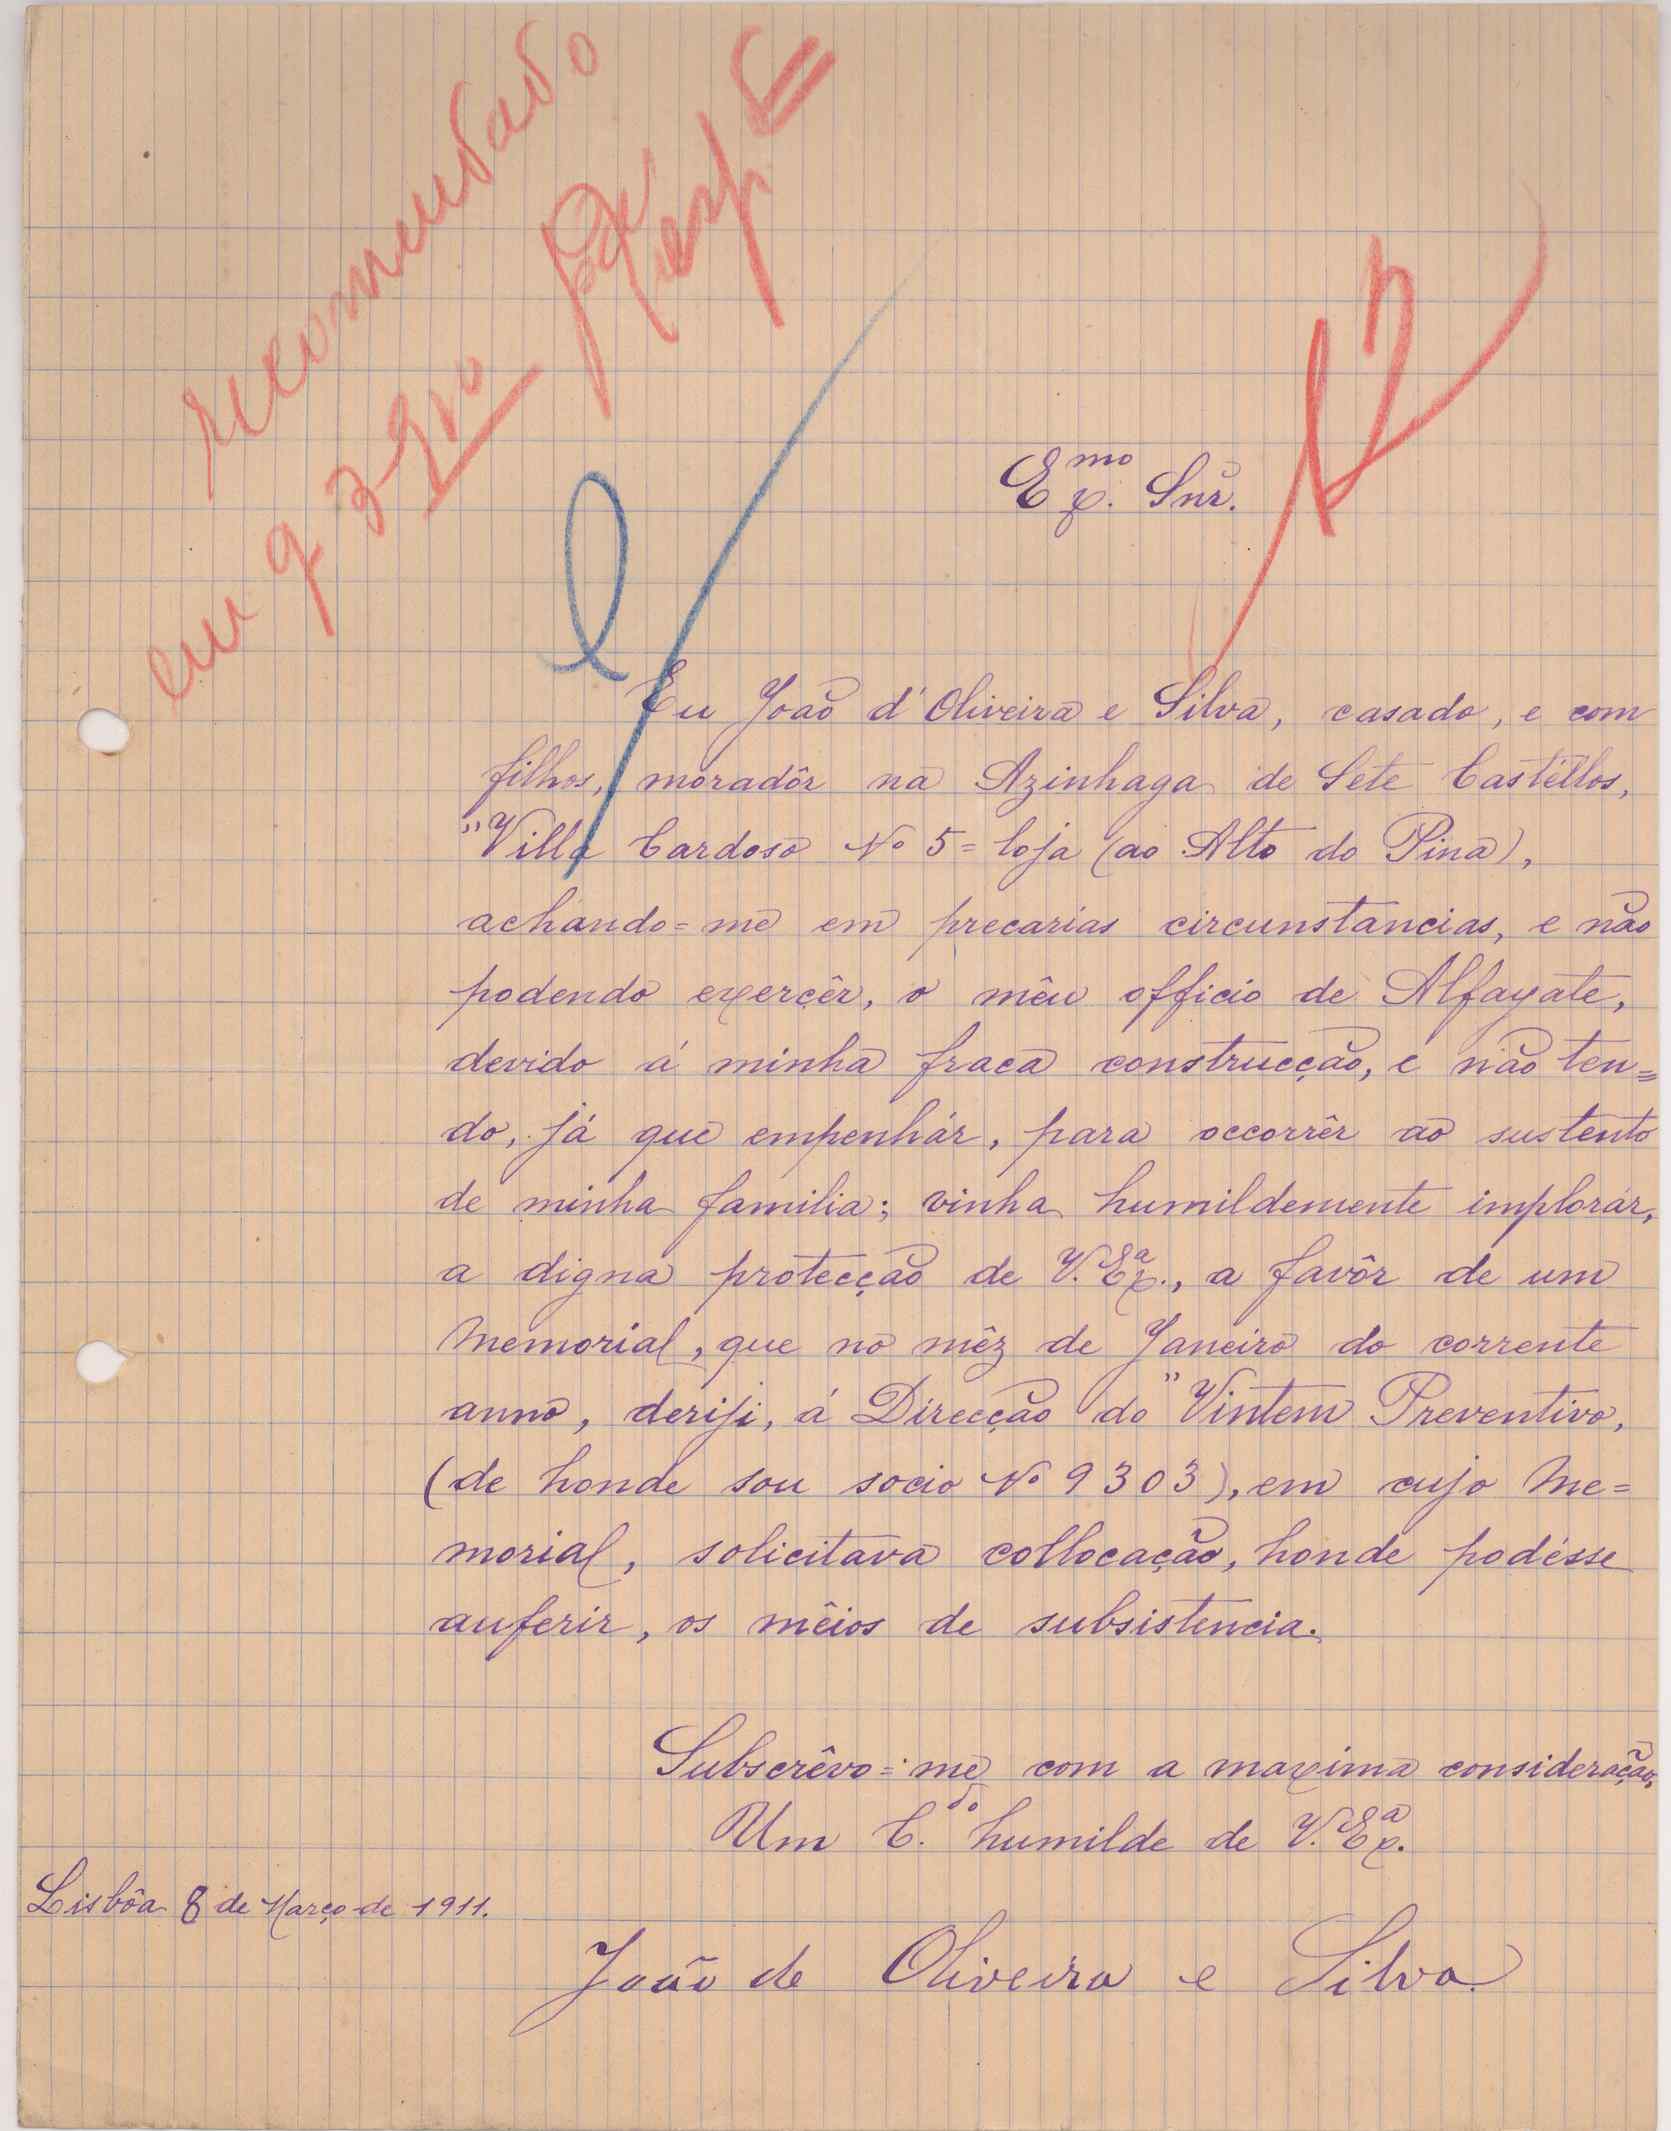 recomendado
em 9-3-911
Resp
12
Exmo. Snr.
Eu João d'Oliveira e Silva, casado, e com
filhos, moradôr na Azinhaga de Sete Castéllos,
"Villa Cardoso No 5 = loja (ao Alto do Pina),
achando=me em precarias circunstancias, e não
podendo exercêr, o mêu officio de Alfayate,
devido á minha fraca construcção, e não ten=
do, já que empenhár, para occorrêr ao sustento
de minha familia; vinha humildemente implorár,
a digna protecção de V. Exa., a favôr de um
Memorial, que no mêz de Janeiro do corrente
anno, deriji, á Direcção do "Vintem Preventivo,
(de honde sou socio No 9303), em cujo Me=
morial, solicitava collocação, honde podésse
auferir, os mêios de subsistencia.
Subscrêvo=me com a maxima consideração,
Um C.do humilde de V. Exa.
Lisbôa 8 de Março de 1911.
João de Oliveira e Silva